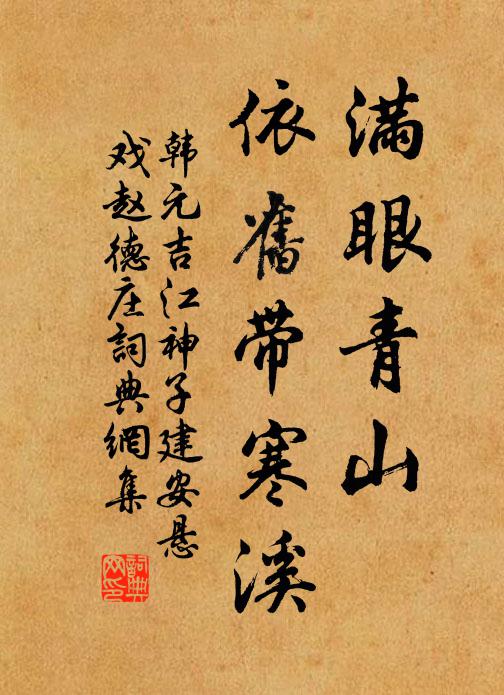 满眼青山
依舊带寒溪
韩元吉江神子建安悬
戏赵德庄詞典網集
詞典
网印